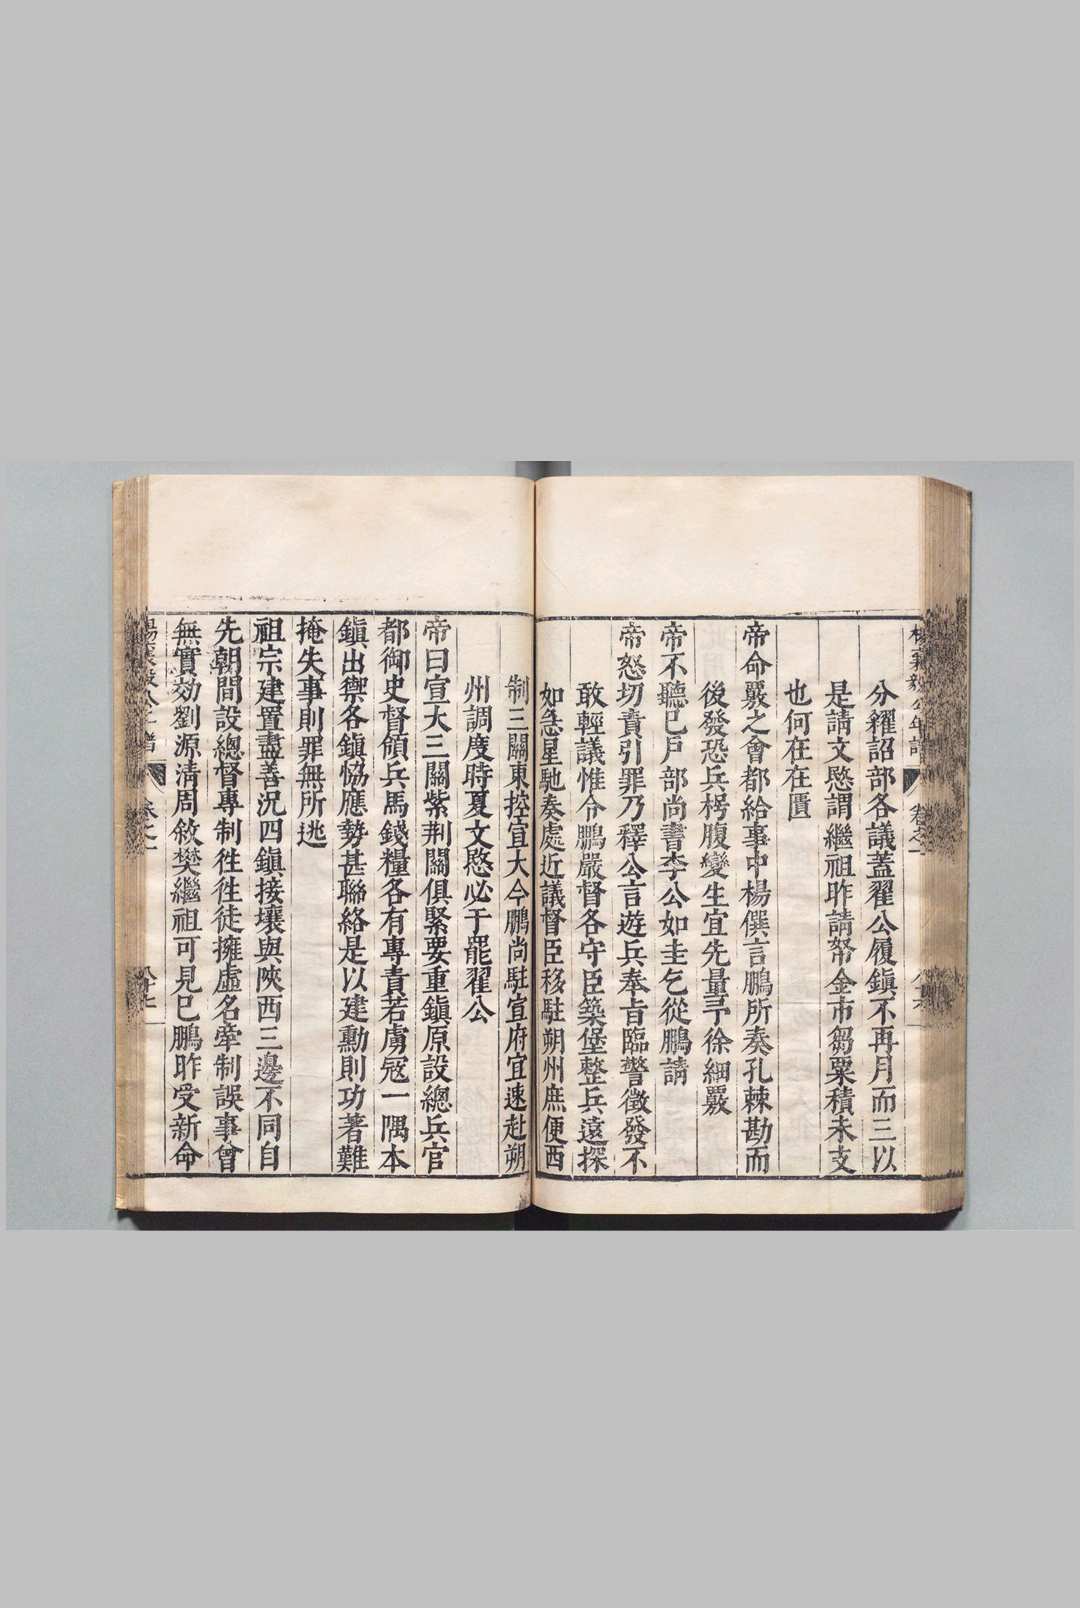 分糴詔部各議蓋翟公履鎮不再月而三以
是請文愍謂繼祖昨請帑金市芻粟積未支
也何在在匱
帝命覈之會都給事中楊僎言鵬所奏孔棘勘而
後發恐兵枵腹變生宜先量予徐細覈
帝不聽已戶部尚書李公如圭乞從鵬請
帝怒切責引罪乃釋公言遊兵奉旨臨警徵發不
敢輕議惟令鵬嚴督各守臣築堡整兵遠探
如急星馳奏處近議督臣移駐朔州庶便西
制三關東控宣大今鵬尚駐宣府宜速赴朔
州調度時夏文愍必于罷翟公
帝曰宣大三關紫荆關俱緊要重鎮原設總兵官
都御史督領兵馬錢糧各有專責若虜冦一隅本
鎮出禦各鎮恊應勢甚聯絡是以建勳則功著難
掩失事則罪無所逃
祖宗建置盡善況四鎮接壤與陝西三邊不同自
先朝間設總督專制徃徃徒擁虛名牽制誤事曾
無實効劉源清周敘樊繼祖可見已鵬昨受新命